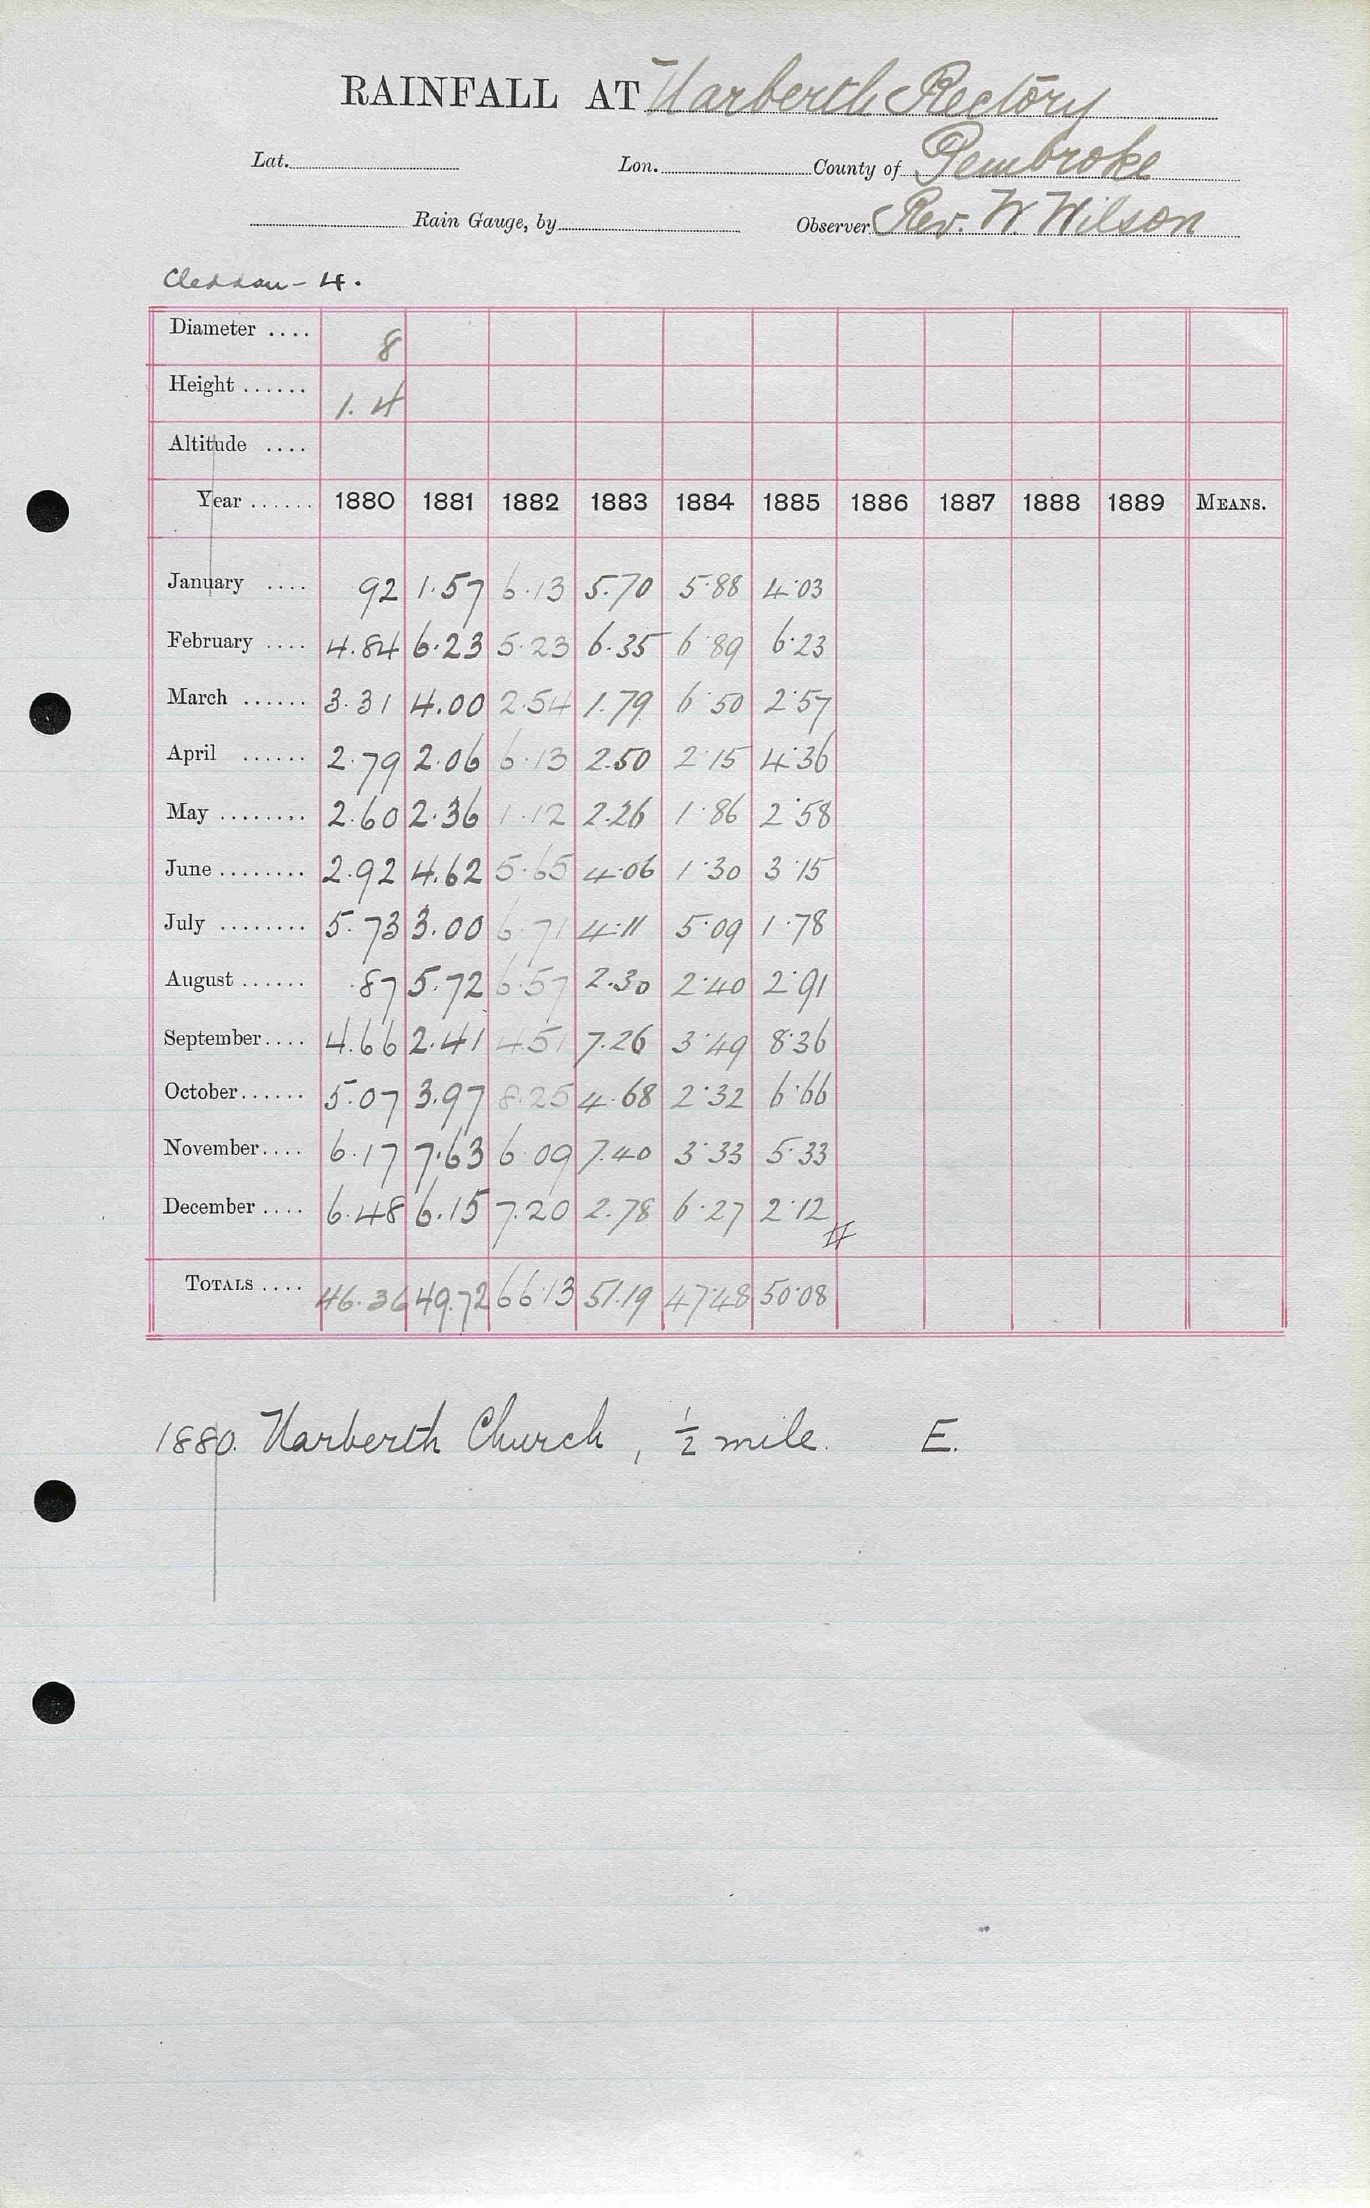 RAINFALL AT Narberth Rectory
Lat. Lon. County of Pembroke
Rain Gauge, by Observer Rev. W. Wilson
Cleddau - 4.
Diameter .... 8
Height ...... 1.4
Altitude ....
Year ...... 1880 1881 1882 1883 1884 1885 1886 1887 1888 1889 MEANS.
January .... 92 1.57 6.13 5.70 5.88 4.03
February .... 4.84 6.23 5.23 6.35 6.89 6.23
March ...... 3.31 4.00 2.54 1.79 6.50 2.57
April ...... 2.79 2.06 6.13 2.50 2.15 4.36
May ........ 2.60 2.36 1.12 2.26 1.86 2.58
June ........ 2.92 4.62 5.65 4.06 1.30 3.15
July ........ 5.73 3.00 6.71 4.11 5.09 1.78
August ...... .87 5.72 6.57 2.30 2.40 2.91
September .... 4.66 2.41 4.51 7.26 3.49 8.36
October ...... 5.07 3.97 8.25 4.68 2.32 6.66
November .... 6.17 7.63 6.09 7.40 3.33 5.33
December .... 6.48 6.15 7.20 2.78 6.27 2.12
TOTALS .... 46.36 49.72 66.13 51.19 47.48 50.08
1880. Narberth Church, ½ mile. E.